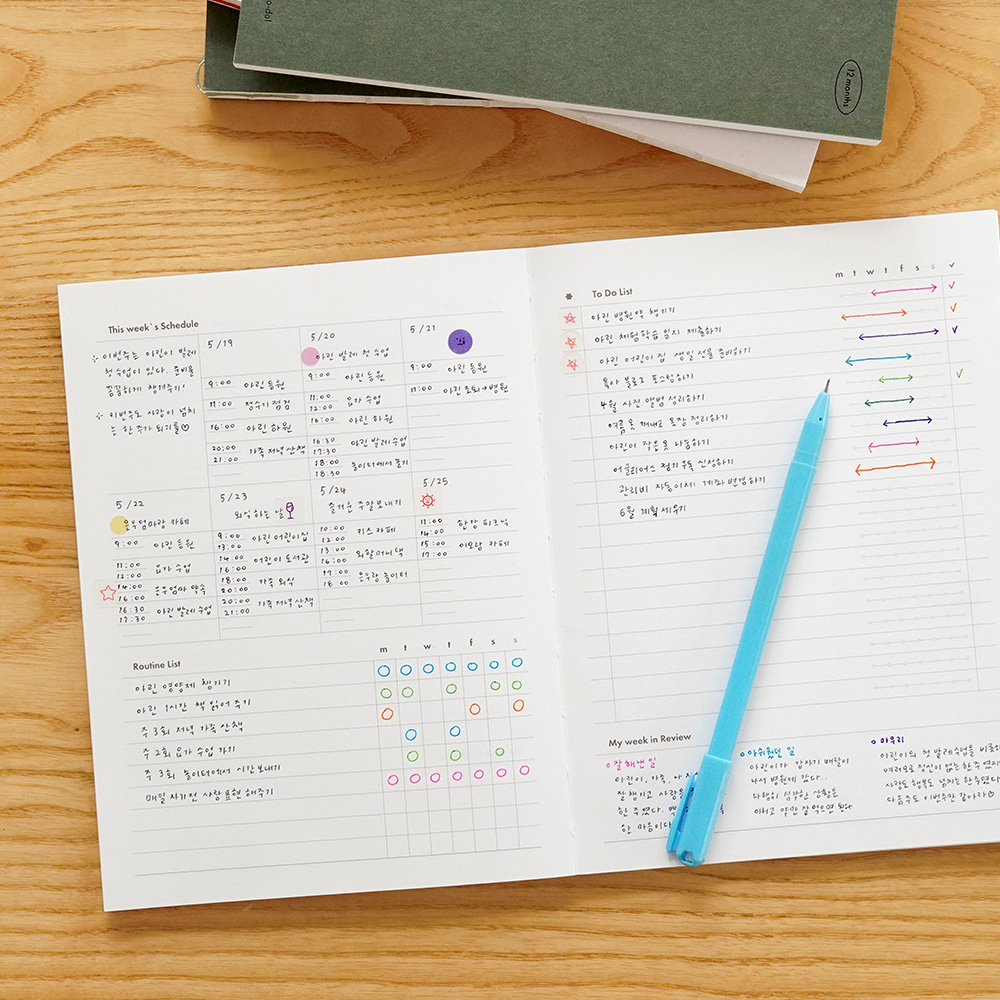 12 months
This week's Schedule
* 이번주는 아린이 발레
첫 수업이 있다. 준비물
꼼꼼하게 챙겨주기!
* 이번주도 사랑이 넘치
는 한 주가 되기를♡
5/19
9:00 아린 등원
11:00 정수기 점검
16:00 아린 하원
20:00
21:00 가족 저녁 산책
5/20
아린 발레 첫 수업
9:00 아린 등원
11:00
12:00 요가 수업
16:00 아린 하원
16:30
17:30 아린 발레 수업
18:00
18:30 놀이터에서 놀기
5/21
9:00 아린 등원
11:00 아린 조퇴→병원
5/22
은우엄마랑 카페
9:00 아린 등원
11:00
12:00 요가 수업
14:00
16:00 은우엄마 약속
16:30
17:30 아린 발레 수업
5/23
외식하는 날
9:00
13:00 아린 어린이집
14:00
16:00 어린이 도서관
18:00
20:00 가족 외식
20:00
21:00 가족 저녁 산책
5/24
즐거운 주말 보내기
10:00
12:00 키즈 카페
13:00
16:00 외할머니댁
17:00
18:00 은우랑 놀이터
5/25
11:00
14:00 한강 피크닉
15:00
17:00 이모랑 카페
Routine List
m t w t f s s
아린 영양제 챙기기
아린 1시간 책 읽어 주기
주 3회 저녁 가족 산책
주 2회 요가 수업 가기
주 3회 놀이터에서 시간 보내기
매일 자기전 사랑표현 해주기
To Do List
m t w t f s s ✓
아린 병원약 챙기기
아린 체험학습 일지 제출하기
아린 어린이집 생일 선물 준비하기
육아 블로그 포스팅하기
4월 사진 앨범 정리하기
여름 옷 꺼내고 옷장 정리하기
아린이 작은옷 나눔하기
어플티어스 정기구독 신청하기
관리비 자동이체 계좌 변경하기
6월 계획 세우기
My week in Review
잘 해낸 일
아린이, 가족, 나
잘 챙기고 사랑을
한 주였다.
한 마음이다
아쉬웠던 일
아린이가 갑자기 배탈이
나서 병원에 갔다..
다행히 심각한 상황은
아니고 약만 잘 먹으면 된다
마무리
아린이의 첫 발레수업을 비롯
여러모로 정신이 없는 한주였지
사랑도 행복도 넘치는 한주였다
다음주도 이번주만 같아라♡